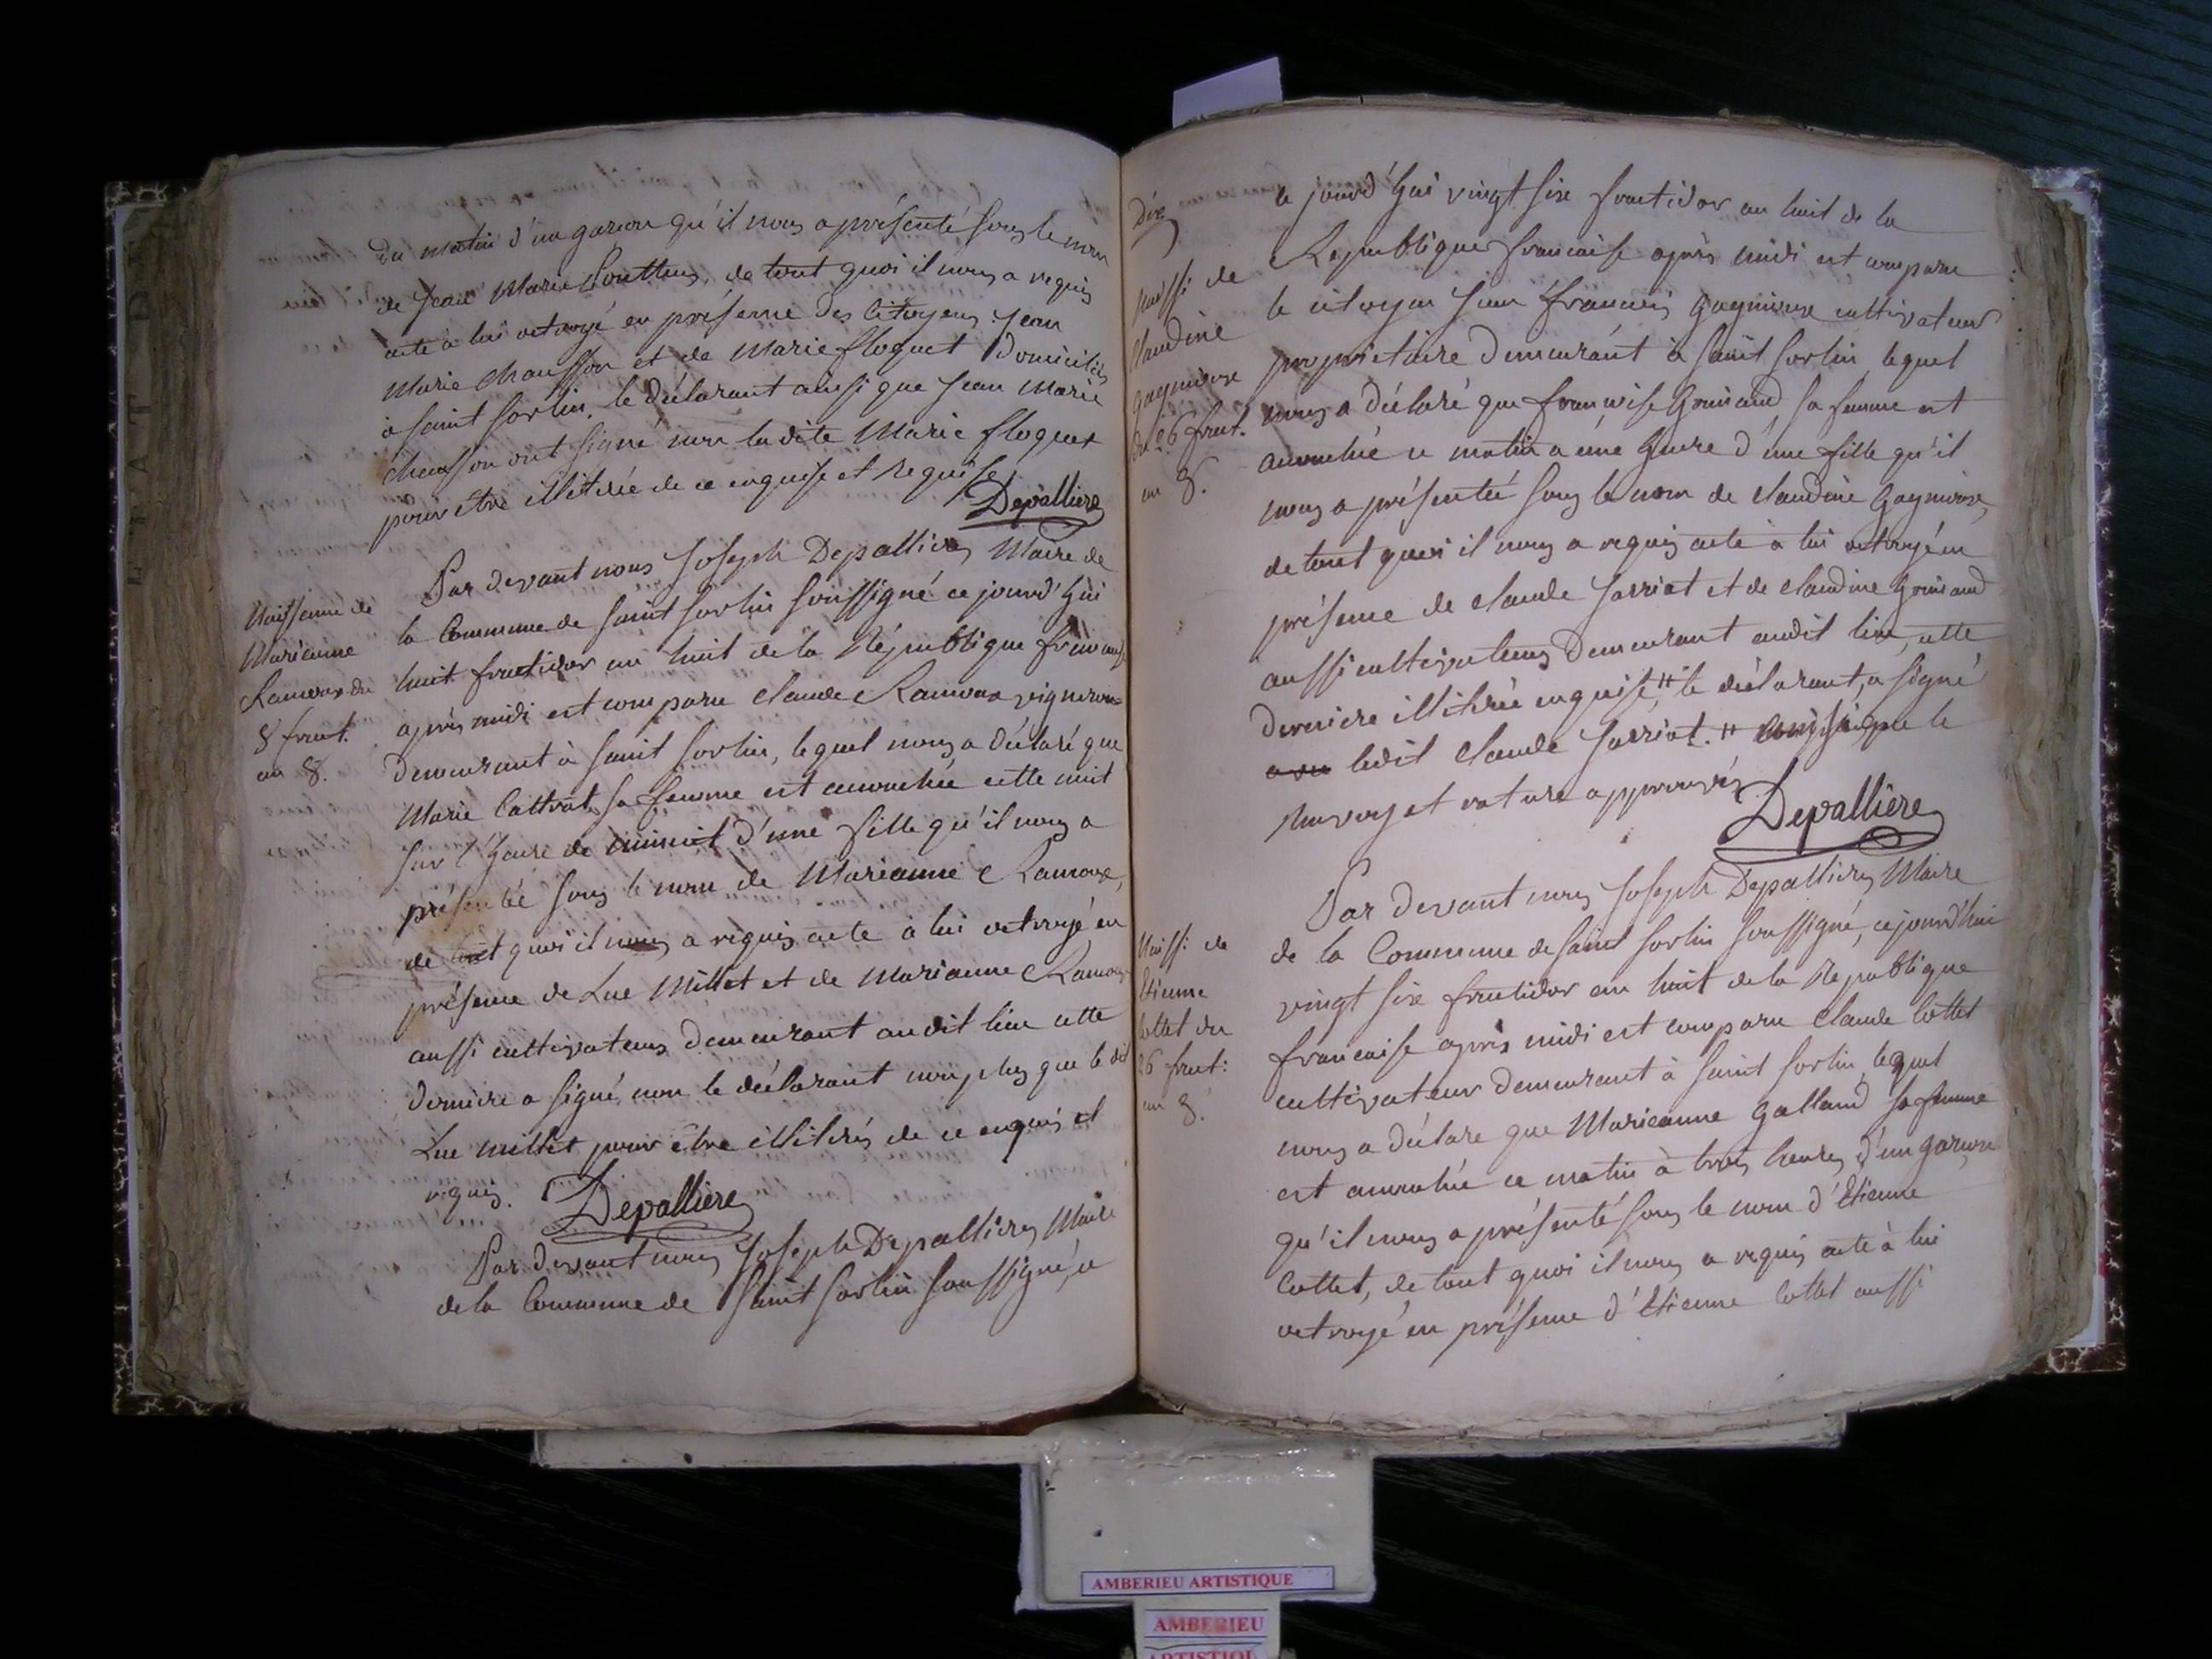 du matin d'un garcon qu'il nous a présenté sous le nom
de Jean Marie, de tout quoi il nous a requis
acte à lui octroyé en présence des Citoyens Jean
Marie Chausson et de Marie floquet domiciliés
à saint Sorlin. le déclarant ainsi que Jean Marie
Chausson ont signé non ladite Marie floquet
pour être illitérée de ce enquise et Requise
Depalliere
Naissance de
Marianne
Ramoux du
8 fruct.
an 8.
Par devant nous Joseph Depallieres Maire de
la Commune de saint Sorlin soussigné ce jourd'hui
huit fructidor an huit de la République francaise
après midi est comparu Claude Ramoux vigneron
demeurant à saint Sorlin, lequel nous a déclaré que
Marie sa femme est accouchée cette nuit
sur l'heure de minuit d'une fille qu'il nous a
présentée sous le nom de Marianne Ramoux,
de tout quoi il nous a requis acte à lui octroyé en
présence de Luc Millet et de Marianne Ramoux
aussi cultivateurs demeurant audit lieu cette
dernière a signé non le déclarant non plus que le dit
Luc millet pour être illitérés de ce enquis et
requis.
Depalliere
Par devant nous Joseph Depallieres Maire
de la Commune de saint Sorlin soussigné, ce
Dix
naiss. de
claudine
gagnieux
du 26 fruct.
an 8.
jourd'hui vingt six fructidor an huit de la
Republique francaise après midi est comparu
le citoyen Jean francois gagnieux cultivateur
proprietaire demeurant à saint Sorlin lequel
nous a déclaré que francoise sa femme est
accouchée ce matin a une heure d'une fille qu'il
nous a présentée sous le nom de claudine gagnieux,
de tout quoi il nous a requis acte à lui octroyé en
présence de claude Sarriat et de claudine
aussi cultivateurs demeurant audit lieu, cette
derniere illitérée enquise, # le déclarant, a signé
ledit claude Sarriat. # ainsi que le
renvoy et rature approuvés
Depalliere
Naiss. de
Etienne
Cottet du
26 fruct:
an 8.
Par devant nous Joseph Depallieres Maire
de la Commune de saint Sorlin soussigné, cejourd'hui
vingt six fructidor an huit de la Republique
francaise après midi est comparu claude Cottet
cultivateur demeurant à saint Sorlin, lequel
nous a déclare que Marieanne galland sa femme
est accouchée ce matin à trois heures d'un garcon
qu'il nous a présenté sous le nom d'Etienne
Cottet, de tout quoi il nous a requis acte à lui
octroyé en présence d'Etienne Cottet aussi
AMBERIEU ARTISTIQUE
AMBERIEU